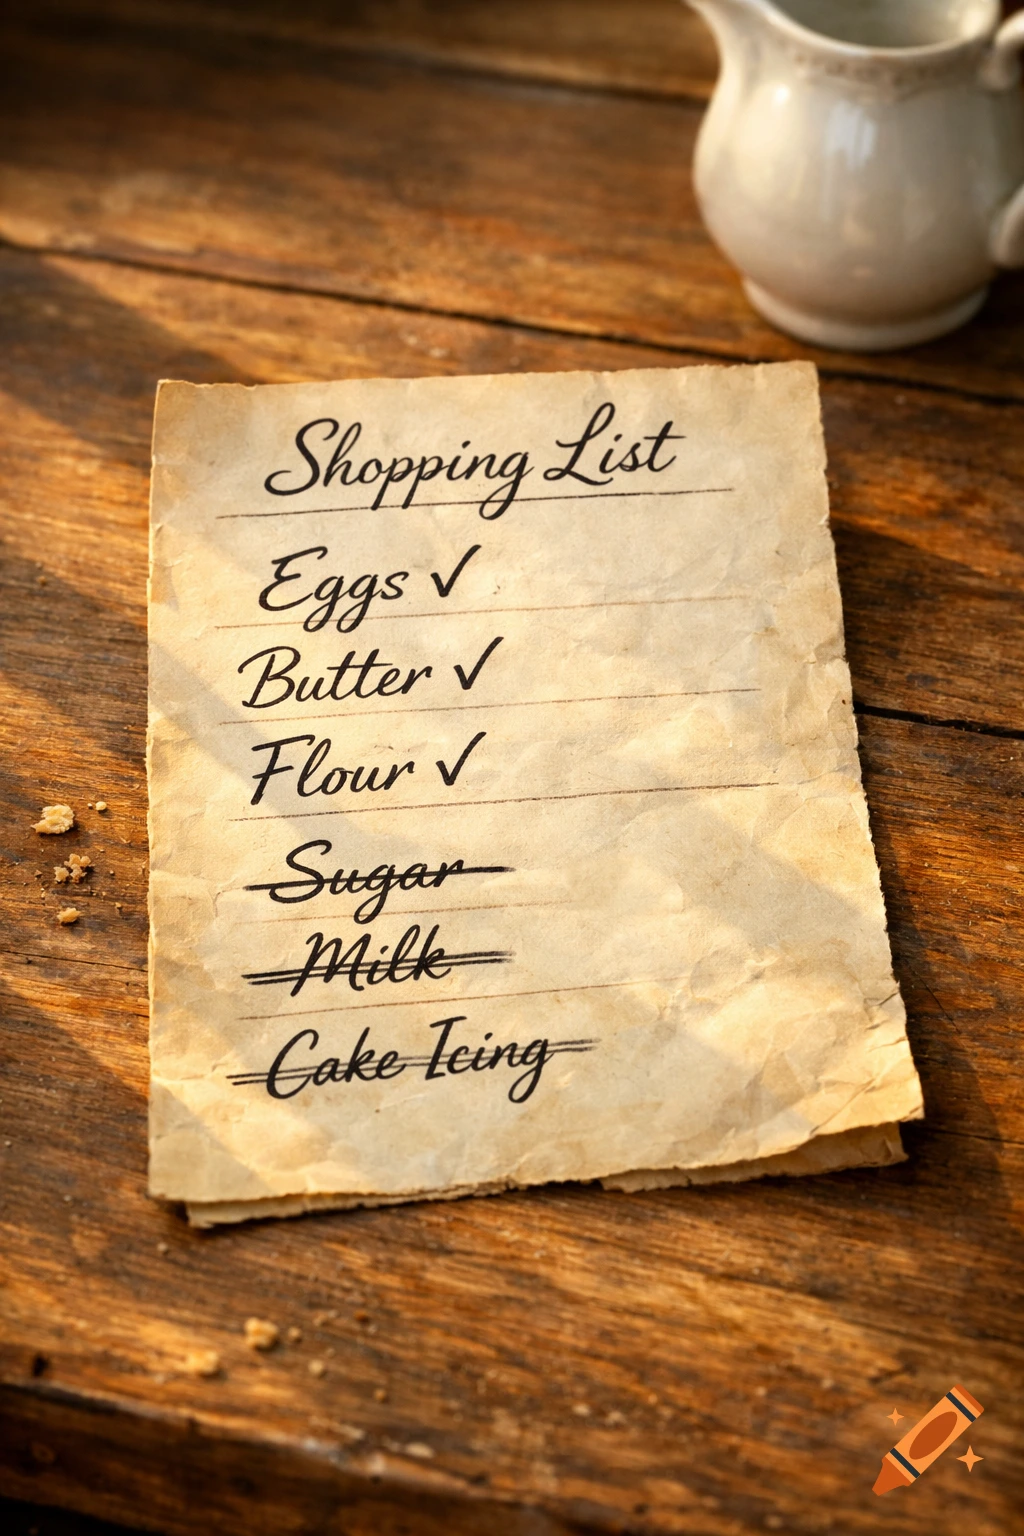 Shopping List
Eggs ✓
Butter ✓
Flour ✓
Sugar
Milk
Cake Icing